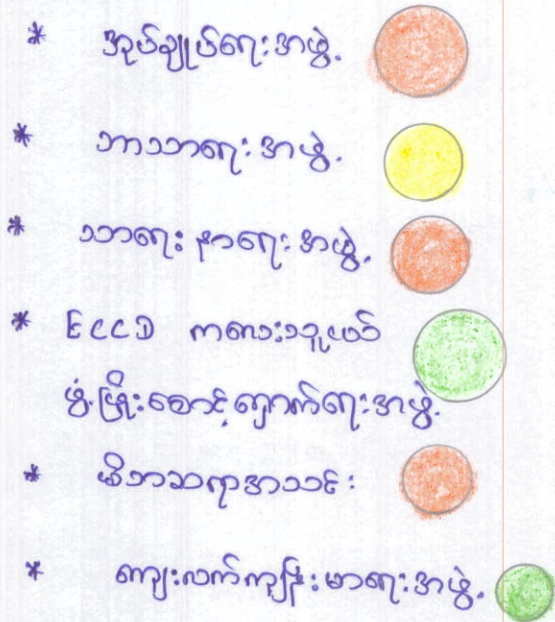 * အုပ်ချုပ်ရေးအဖွဲ့.
* ဘာသာရေးအဖွဲ့.
* သာရေးနာရေးအဖွဲ့.
* ECCD ကလေးသူငယ်
ဖွံ့ဖြိုးစောင့်ရှောက်ရေးအဖွဲ့.
* မိဘဆရာအသင်း
* ကျေးလက်ကျန်းမာရေးအဖွဲ့.